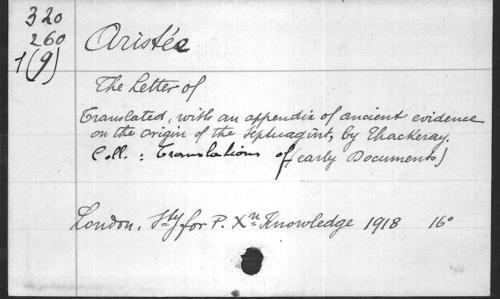 320
260
1(9)
Aristée
The Letter of
Translated, with an appendix of ancient evidence
on the origin of the Septuagint, by Thackeray.
Coll. : Translations of (early Documents)
London, Sty for P. Xn Knowledge 1918 16°